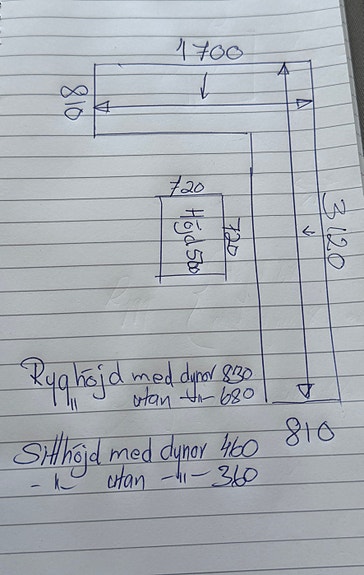 1700
810
3120
720
720
Höjd 500
Rygghöjd med dynor 830
" utan -"- 680
810
Sitthöjd med dynor 460
-"- utan -"- 360